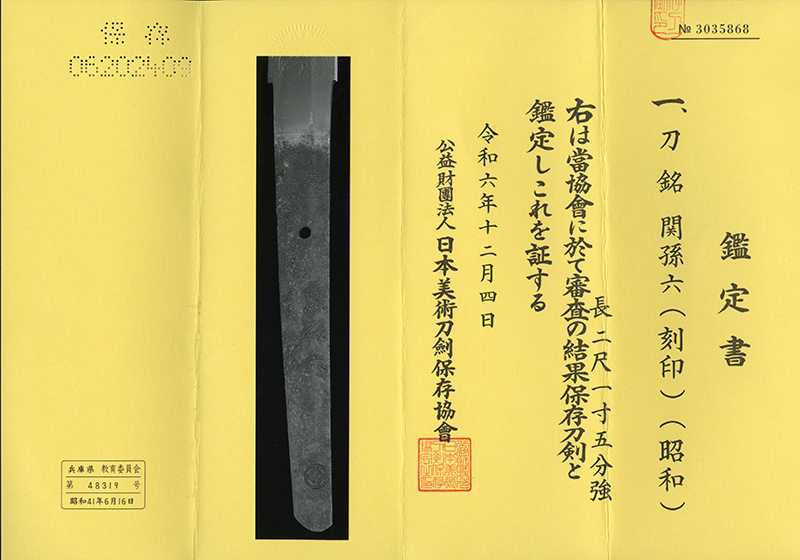 № 3035868
鑑定書
一、刀 銘 関孫六(刻印)(昭和)
長二尺一寸五分強
右は當協會に於て審査の結果保存刀剣と
鑑定しこれを証する
令和六年十二月四日
公益財團法人 日本美術刀劍保存協會
保存
兵庫県 教育委員会
第 48319 号
昭和41年6月16日